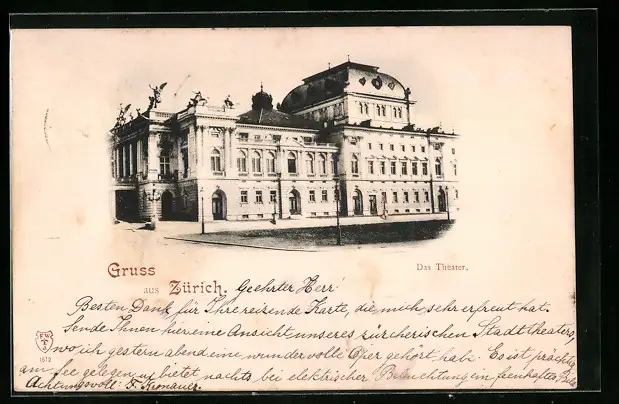 Das Theater.
Gruss
aus Zürich. Geehrter Herr!
Besten Dank für Ihre reizende Karte, die mich sehr erfreut hat.
Sende Ihnen hier eine Ansicht unseres zürcherischen Stadttheaters,
wo ich gestern abend eine wundervolle Oper gehört habe. Es ist prächtig
am See gelegen u. bietet nachts bei elektrischer Beleuchtung ein feenhaftes Bild.
Achtungsvoll: F.
1512